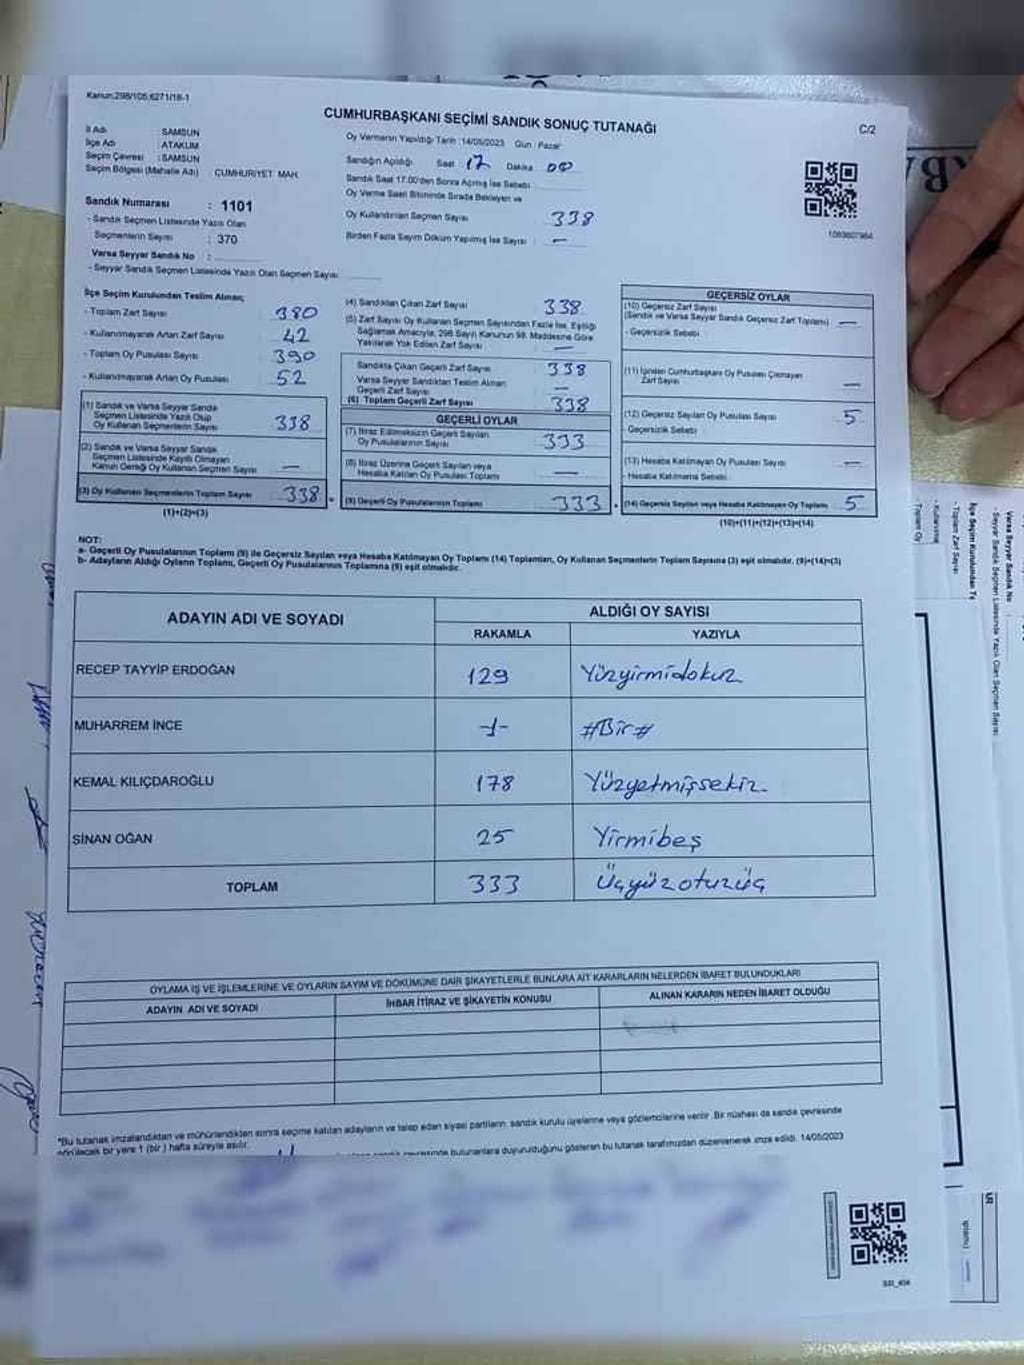 Kanun:298/105,6271/18-1
CUMHURBAŞKANI SEÇİMİ SANDIK SONUÇ TUTANAĞI
C/2
İl Adı : SAMSUN
İlçe Adı : ATAKUM
Seçim Çevresi : SAMSUN
Seçim Bölgesi (Mahalle Adı) CUMHURİYET MAH.
Sandık Numarası : 1101
- Sandık Seçmen Listesinde Yazılı Olan
Seçmenlerin Sayısı : 370
Varsa Seyyar Sandık No :
- Seyyar Sandık Seçmen Listesinde Yazılı Olan Seçmen Sayısı
Oy Vermenin Yapıldığı Tarih : 14/05/2023 Gün : Pazar
Sandığın Açıldığı Saat 17 Dakika 00
Sandık Saat 17.00'den Sonra Açılmış İse Sebebi
Oy Verme Saati Bitiminde Sırada Bekleyen ve
Oy Kullandırılan Seçmen Sayısı 338
Birden Fazla Sayım Döküm Yapılmış İse Sayısı —
1080607964
İlçe Seçim Kurulundan Teslim Alınan;
- Toplam Zarf Sayısı 380
- Kullanılmayarak Artan Zarf Sayısı 42
- Toplam Oy Pusulası Sayısı 390
- Kullanılmayarak Artan Oy Pusulası 52
(1) Sandık ve Varsa Seyyar Sandık
Seçmen Listesinde Yazılı Olup
Oy Kullanan Seçmenlerin Sayısı 338
(2) Sandık ve Varsa Seyyar Sandık
Seçmen Listesinde Kayıtlı Olmayan
Kanun Gereği Oy Kullanan Seçmen Sayısı —
(3) Oy Kullanan Seçmenlerin Toplam Sayısı 338
(1)+(2)=(3)
(4) Sandıktan Çıkan Zarf Sayısı 338
(5) Zarf Sayısı Oy Kullanan Seçmen Sayısından Fazla İse, Eşitliği
Sağlamak Amacıyla, 298 Sayılı Kanunun 98. Maddesine Göre
Yakılarak Yok Edilen Zarf Sayısı —
Sandıkta Çıkan Geçerli Zarf Sayısı 338
Varsa Seyyar Sandıktan Teslim Alınan
Geçerli Zarf Sayısı —
(6) Toplam Geçerli Zarf Sayısı 338
GEÇERLİ OYLAR
(7) İtiraz Edilmeksizin Geçerli Sayılan
Oy Pusulalarının Sayısı 333
(8) İtiraz Üzerine Geçerli Sayılan veya
Hesaba Katılan Oy Pusulası Toplamı —
(9) Geçerli Oy Pusulalarının Toplamı 333
GEÇERSİZ OYLAR
(10) Geçersiz Zarf Sayısı
(Sandık ve Varsa Seyyar Sandık Geçersiz Zarf Toplamı) —
- Geçersizlik Sebebi :
(11) İçinden Cumhurbaşkanı Oy Pusulası Çıkmayan
Zarf Sayısı —
(12) Geçersiz Sayılan Oy Pusulası Sayısı 5
- Geçersizlik Sebebi :
(13) Hesaba Katılmayan Oy Pusulası Sayısı —
- Hesaba Katılmama Sebebi :
(14) Geçersiz Sayılan veya Hesaba Katılmayan Oy Toplamı 5
(10)+(11)+(12)+(13)=(14)
NOT:
a- Geçerli Oy Pusulalarının Toplamı (9) ile Geçersiz Sayılan veya Hesaba Katılmayan Oy Toplamı (14) Toplamları, Oy Kullanan Seçmenlerin Toplam Sayısına (3) eşit olmalıdır. (9)+(14)=(3)
b- Adayların Aldığı Oyların Toplamı, Geçerli Oy Pusulalarının Toplamına (9) eşit olmalıdır.
ADAYIN ADI VE SOYADI ALDIĞI OY SAYISI
RAKAMLA YAZIYLA
RECEP TAYYİP ERDOĞAN 129 Yüzyirmidokuz
MUHARREM İNCE -1- #Bir#
KEMAL KILIÇDAROĞLU 178 Yüzyetmişsekiz
SİNAN OĞAN 25 Yirmibeş
TOPLAM 333 Üçyüzotuzüç
OYLAMA İŞ VE İŞLEMLERİNE VE OYLARIN SAYIM VE DÖKÜMÜNE DAİR ŞİKAYETLERLE BUNLARA AİT KARARLARIN NELERDEN İBARET BULUNDUKLARI
ADAYIN ADI VE SOYADI İHBAR İTİRAZ VE ŞİKAYETİN KONUSU ALINAN KARARIN NEDEN İBARET OLDUĞU
*Bu tutanak imzalandıktan ve mühürlendikten sonra seçime katılan adayların ve talep eden siyasi partilerin sandık kurulu üyelerine veya gözlemcilerine verilir. Bir nüshası da sandık çevresinde
görülecek bir yere 1 (bir) hafta süreyle asılır.
bulunanlara duyurulduğunu gösteren bu tutanak tarafımızdan düzenlenerek imza edildi. 14/05/2023